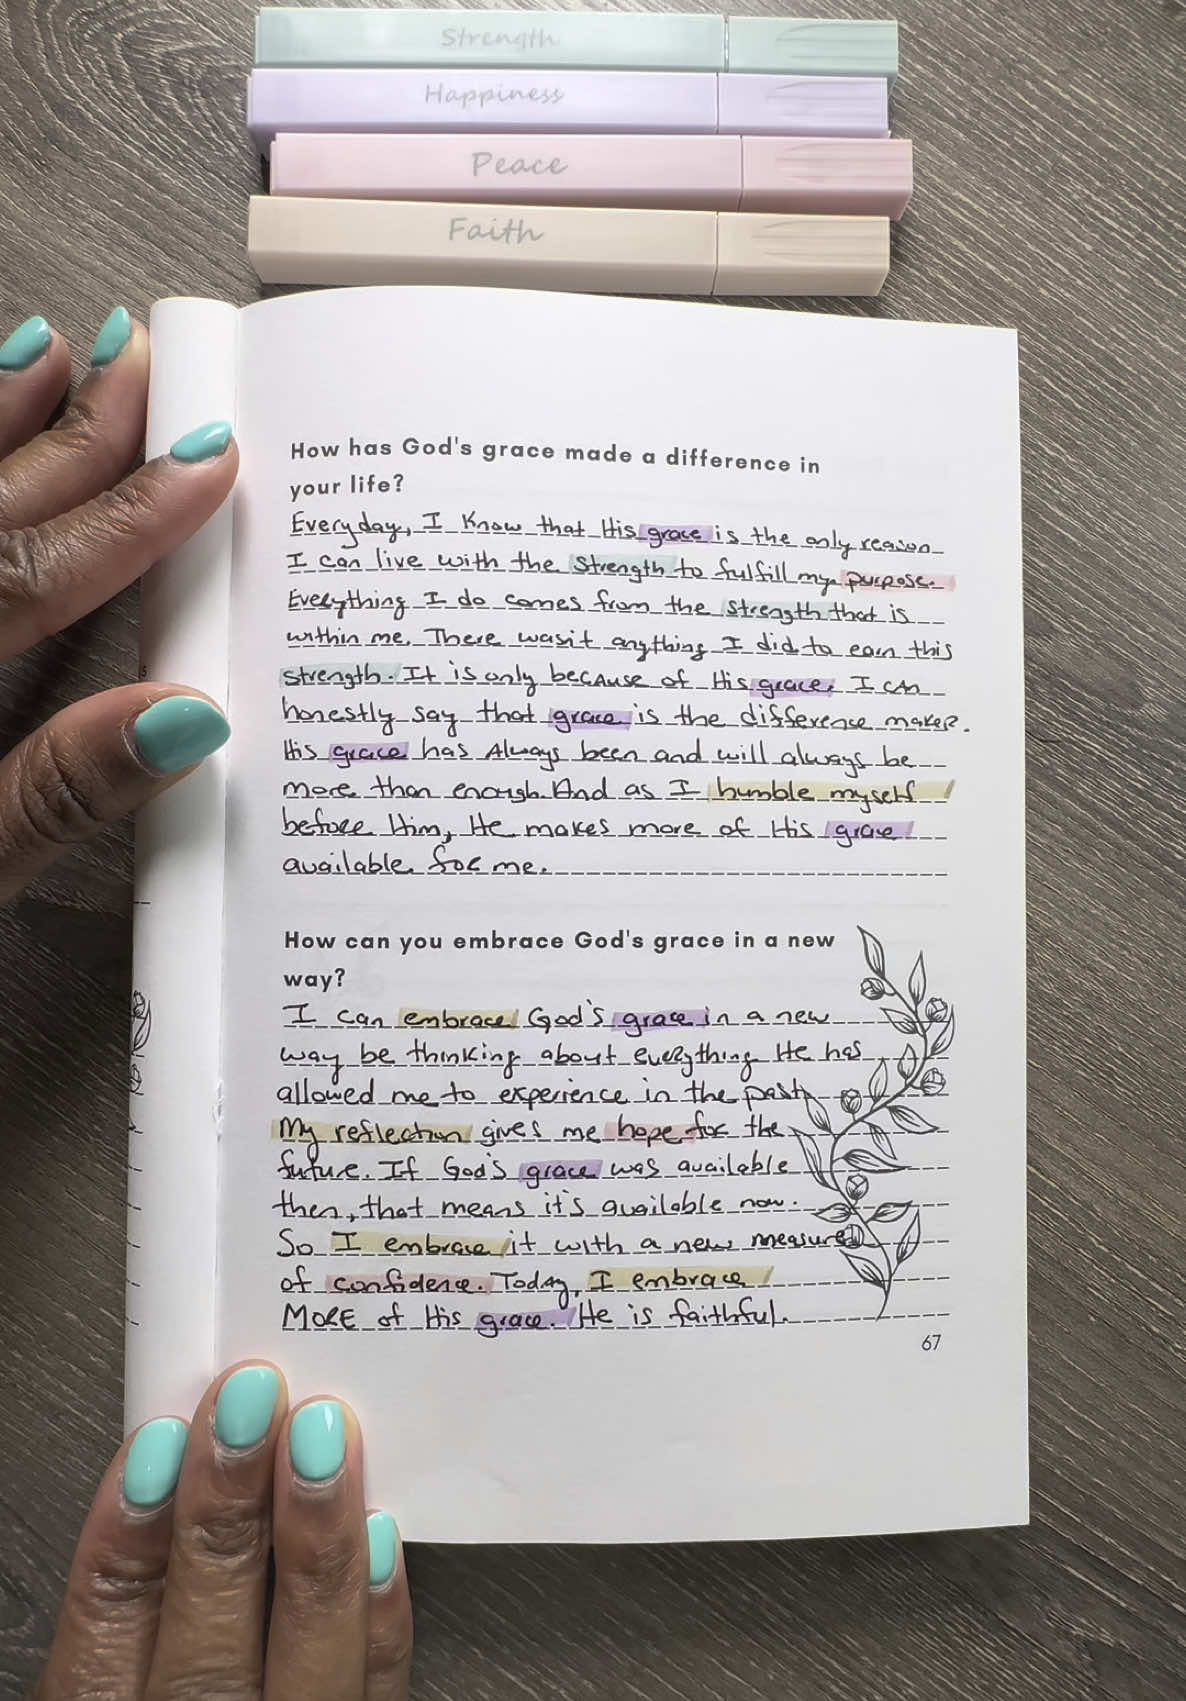 Strength
Happiness
Peace
Faith
How has God's grace made a difference in
your life?
Everyday, I know that His grace is the only reason
I can live with the strength to fulfill my purpose.
Everything I do comes from the strength that is
within me. There wasn't anything I did to earn this
strength. It is only because of His grace. I can
honestly say that grace is the difference maker.
His grace has always been and will always be
more than enough. And as I humble myself
before Him, He makes more of His grace
available for me.
How can you embrace God's grace in a new
way?
I can embrace God's grace in a new
way be thinking about everything He has
allowed me to experience in the past.
My reflection gives me hope for the
future. If God's grace was available
then, that means it's available now.
So I embrace it with a new measured
of confidence. Today, I embrace
MORE of His grace. He is faithful.
67